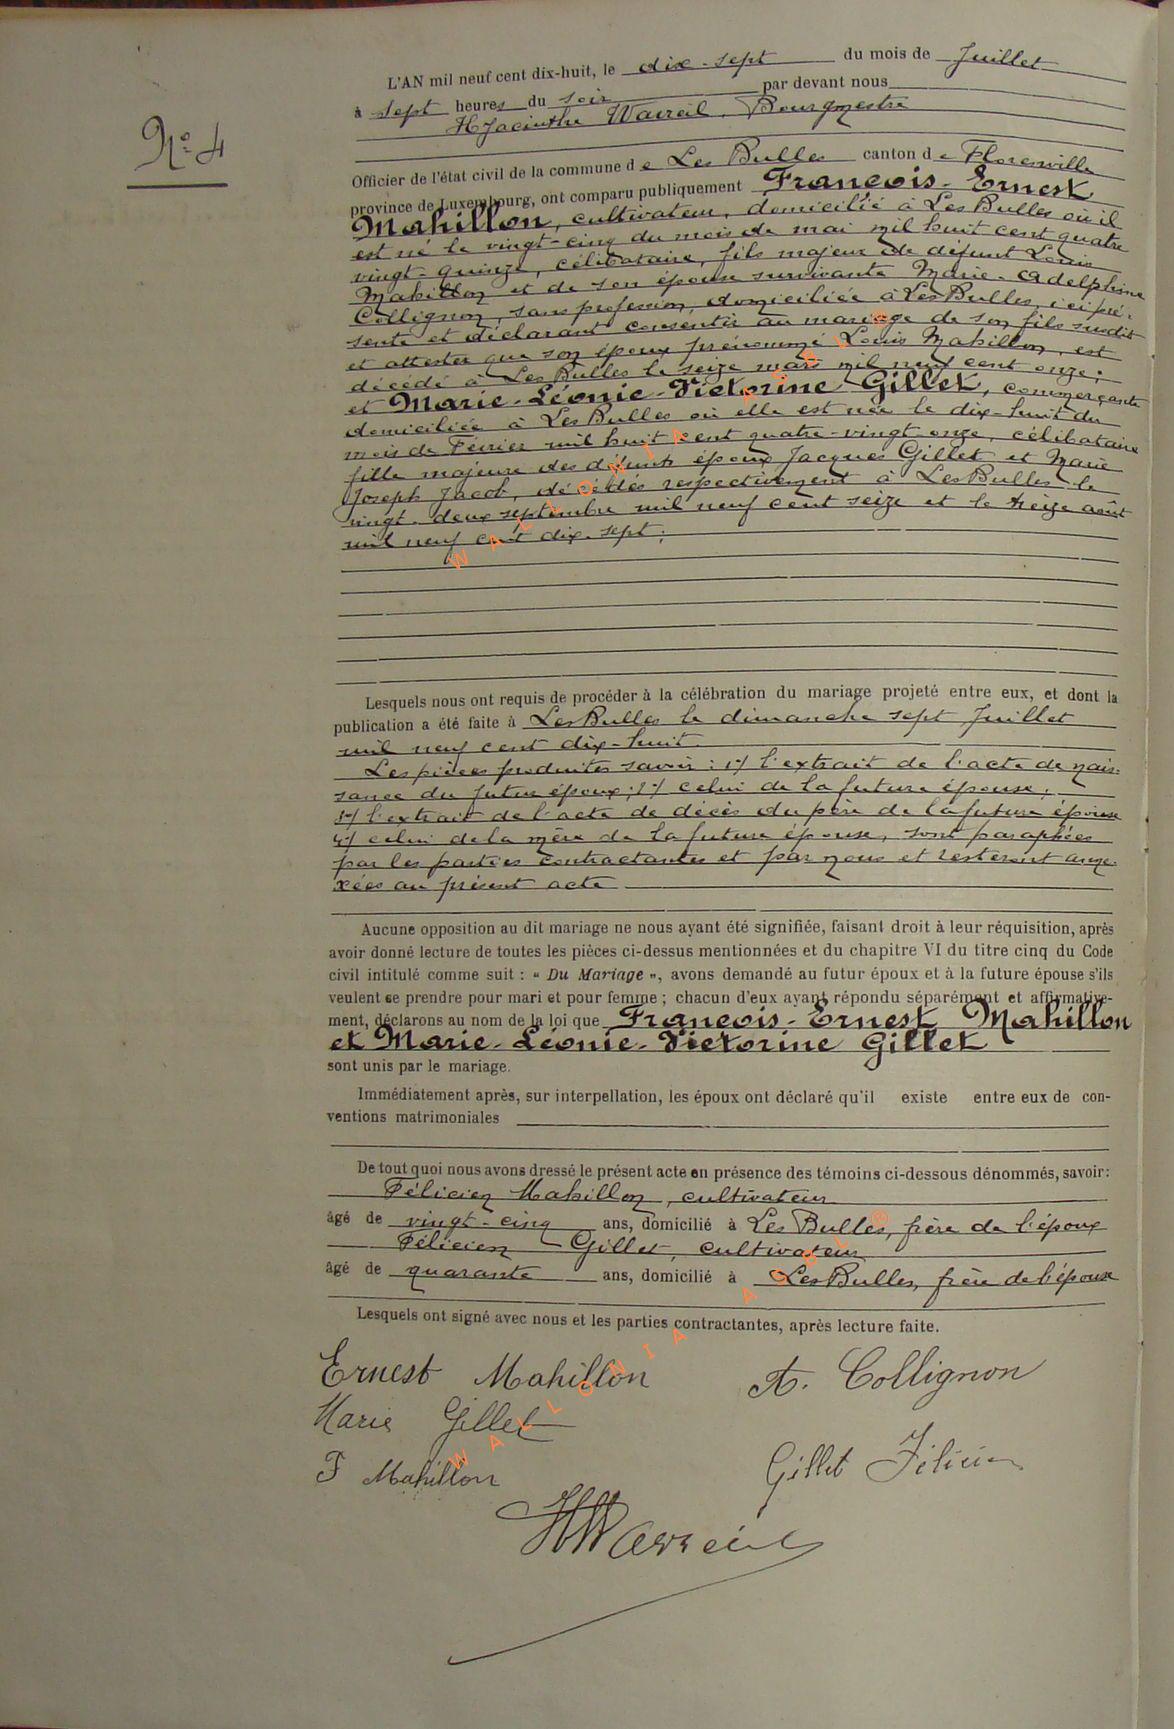 N° 4
L'AN mil neuf cent dix-huit, le dix-sept du mois de Juillet
à sept heures du soir par devant nous
Hyacinthe Bourgmestre
Officier de l'état civil de la commune de Les Bulles canton de Florenville
province de Luxembourg, ont comparu publiquement François-Ernest
Mahillon, cultivateur, domicilié à Les Bulles où il
est né le vingt-cinq du mois de mai mil huit cent quatre
vingt-quinze, célibataire, fils majeur de défunt Louis
Mahillon et de son épouse survivante Marie-Adelphine
Collignon, sans profession, domiciliée à Les Bulles, ici pré-
sente et déclarant consentir au mariage de son fils susdit
et attester que son époux prénommé Louis Mahillon, est
décédé à Les Bulles le seize mars mil neuf cent onze;
et Marie-Léonie-Victorine Gillet, commerçante
domiciliée à Les Bulles où elle est née le dix-huit du
mois de Février mil huit cent quatre-vingt onze, célibataire
fille majeure des défunts époux Jacques Gillet et Marie
Joseph Jacob, décédés respectivement à Les Bulles le
vingt-deux septembre mil neuf cent seize et le treize août
mil neuf cent dix-sept;
Lesquels nous ont requis de procéder à la célébration du mariage projeté entre eux, et dont la
publication a été faite à Les Bulles le dimanche sept Juillet
mil neuf cent dix-huit.
Les pièces produites savoir: 1°/ l'extrait de l'acte de nais-
sance du futur époux; 2°/ celui de la future épouse;
3°/ l'extrait de l'acte de décès du père de la future épouse
4°/ celui de la mère de la future épouse, sont paraphées
par les parties contractantes et par nous et resteront anne-
xées au présent acte
Aucune opposition au dit mariage ne nous ayant été signifiée, faisant droit à leur réquisition, après
avoir donné lecture de toutes les pièces ci-dessus mentionnées et du chapitre VI du titre cinq du Code
civil intitulé comme suit : « Du Mariage », avons demandé au futur époux et à la future épouse s'ils
veulent se prendre pour mari et pour femme ; chacun d'eux ayant répondu séparément et affirmative-
ment, déclarons au nom de la loi que François-Ernest Mahillon
et Marie-Léonie-Victorine Gillet
sont unis par le mariage.
Immédiatement après, sur interpellation, les époux ont déclaré qu'il existe entre eux de con-
ventions matrimoniales
De tout quoi nous avons dressé le présent acte en présence des témoins ci-dessous dénommés, savoir:
Félicien Mahillon, cultivateur
âgé de vingt-cinq ans, domicilié à Les Bulles, frère de l'époux
Félicien Gillet, cultivateur
âgé de quarante ans, domicilié à Les Bulles, frère de l'épouse
Lesquels ont signé avec nous et les parties contractantes, après lecture faite.
Ernest Mahillon A. Collignon
Marie Gillet
F Mahillon Gillet Félicien
WALLONIA ASBL ®
WALLONIA ASBL ®